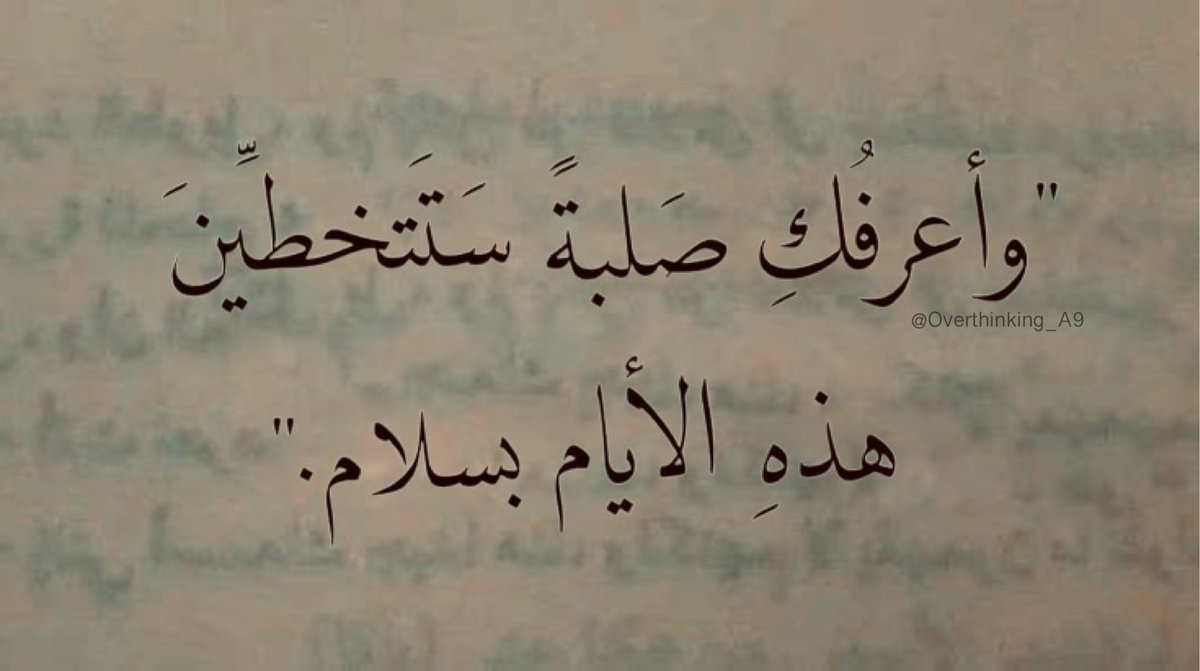 "وأعرفُكِ صَلبةً سَتَتَخطِّينَ
@Overthinking_A9
هذهِ الأيام بسلام."